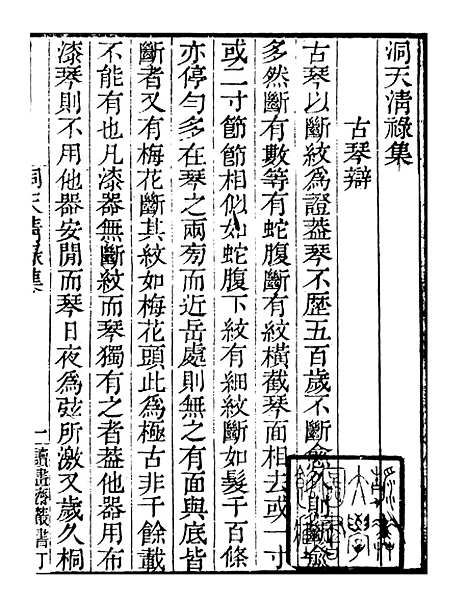 洞天清祿集
古琴辯
古琴以斷紋為證葢琴不歷五百歲不斷愈久則斷愈
多然斷有數等有蛇腹斷有紋橫截琴面相去或一寸
或二寸節節相似如蛇腹下紋有細紋斷如髮千百條
亦停勻多在琴之兩旁而近岳處則無之有面與底皆
斷者又有梅花斷其紋如梅花頭此為極古非千餘載
不能有也凡漆器無斷紋而琴獨有之者葢他器用布
漆琴則不用他器安閒而琴日夜為弦所激又歲久桐
洞天清祿集
一
讀畫齋叢書丁